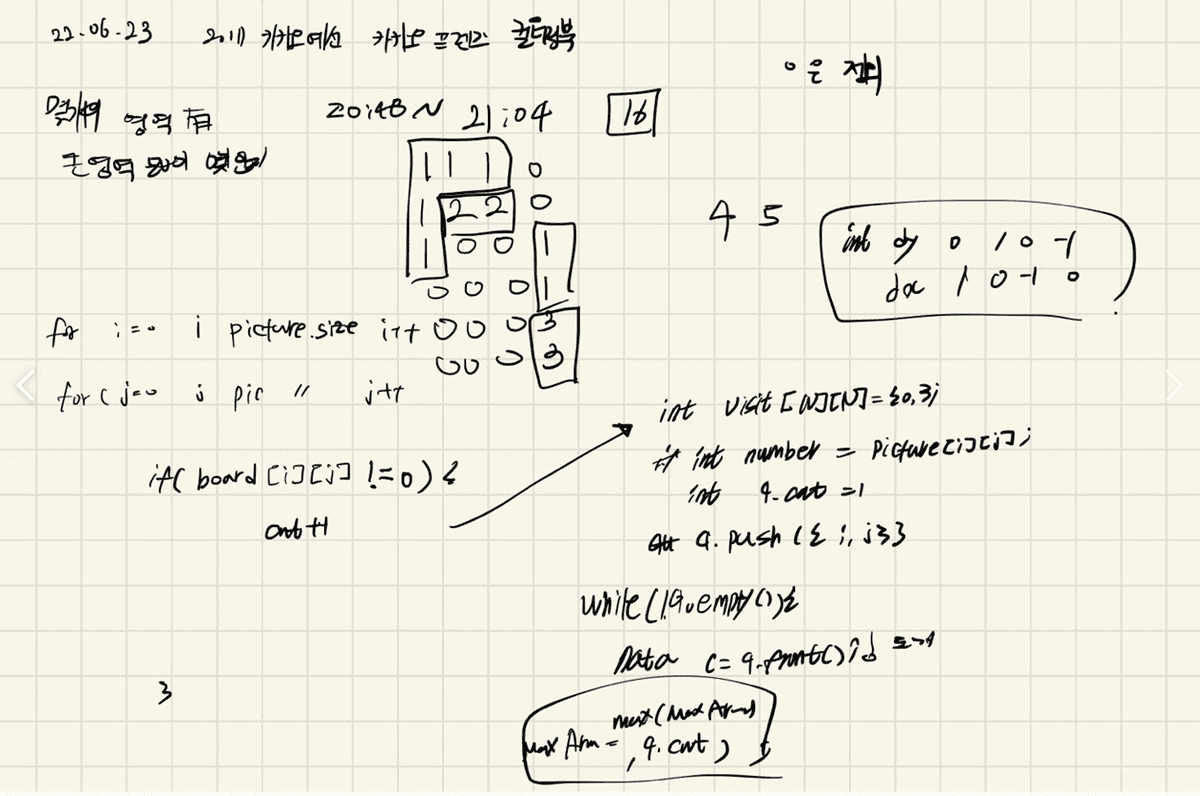 22.06.23 2017 카카오예선 카카오 프렌즈 컬러링북
0은 제외
몇개의 영역 有
20:48 ~ 21:04 16
큰영역
1 1 1 0
1 2 2 0
1 0 0 1
0 0 0 1
0 0 0 3
0 0 0 3
4 5
int dy 0 1 0 -1
dx 1 0 -1 0
for i=0 i picture.size i++
for ( j=0 j pic 〃 j++
if( board [i][j] != 0 ) {
cnt ++
int visit [N][N] = {0,};
int number = picture[i][j];
int q.cnt = 1
q. push ( { i, j }}
while(!q.empty()){
Data c = q.front();
max Area = max(MaxArea
, q.cnt )
3